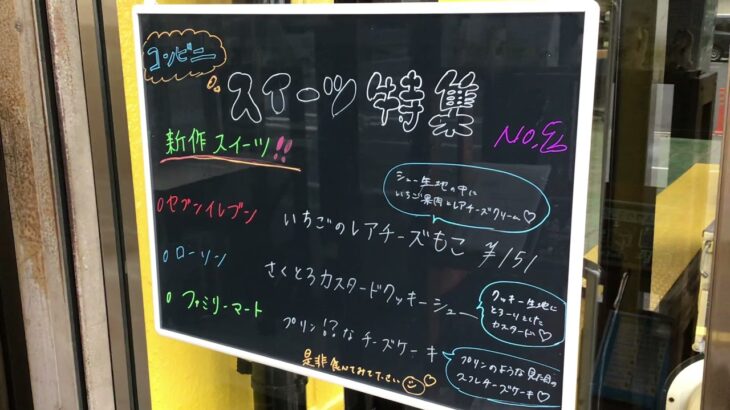 コンビニ
スイーツ特集
新作スイーツ!!
シュー生地の中に
いちご果肉とレアチーズクリーム♡
セブンイレブン
いちごのレアチーズもこ ¥151
ローソン
さくとろカスタードクッキーシュー
クッキー生地に
とろーりとした
カスタード
ファミリーマート
プリン!?なチーズケーキ
プリンのような見た目の
スフレチーズケーキ♡
是非食べてみて下さい